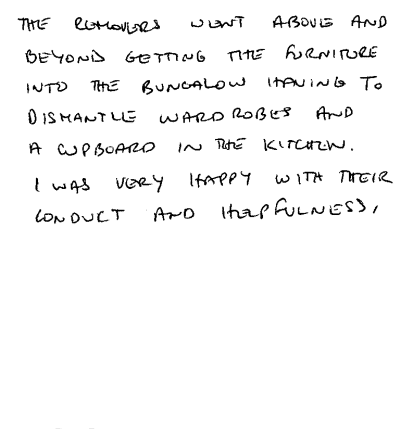 THE REMOVERS WENT ABOVE AND
BEYOND GETTING THE FURNITURE
INTO THE BUNGALOW HAVING TO
DISMANTLE WARDROBES AND
A CUPBOARD IN THE KITCHEN.
I WAS VERY HAPPY WITH THEIR
CONDUCT AND HELPFULNESS,